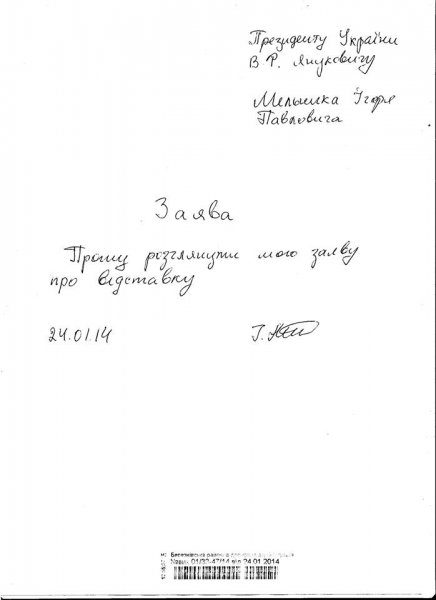 Президенту України
В Р. Януковичу
Мельника Ігоря
Павловича
Заява
Прошу розглянути мого заяву
про відставку
24.01.14
І.
01/33-47/14 від 24.01.2014